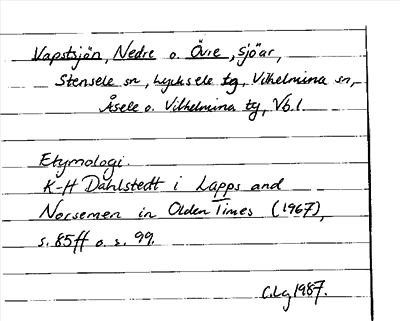 Vapstsjön, Nedre o. Övre, sjöar,
Stensele sn, Lycksele tg, Vilhelmina sn,
Åsele o. Vilhelmina tg, Vb.l.
Etymologi.
K-H Dahlstedt i Lapps and
Norsemen in Olden Times (1967),
s. 85ff o. s. 99.
C.Lg 1987.